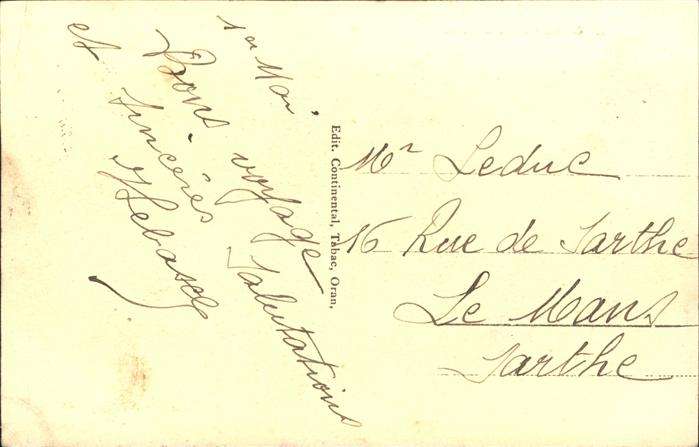 1er Mai
Bons voyage
et sincères Salutations
Edit. Continental, Tabac, Oran,
Mr Leduc
16 Rue de Sarthe
Le Mans
Sarthe